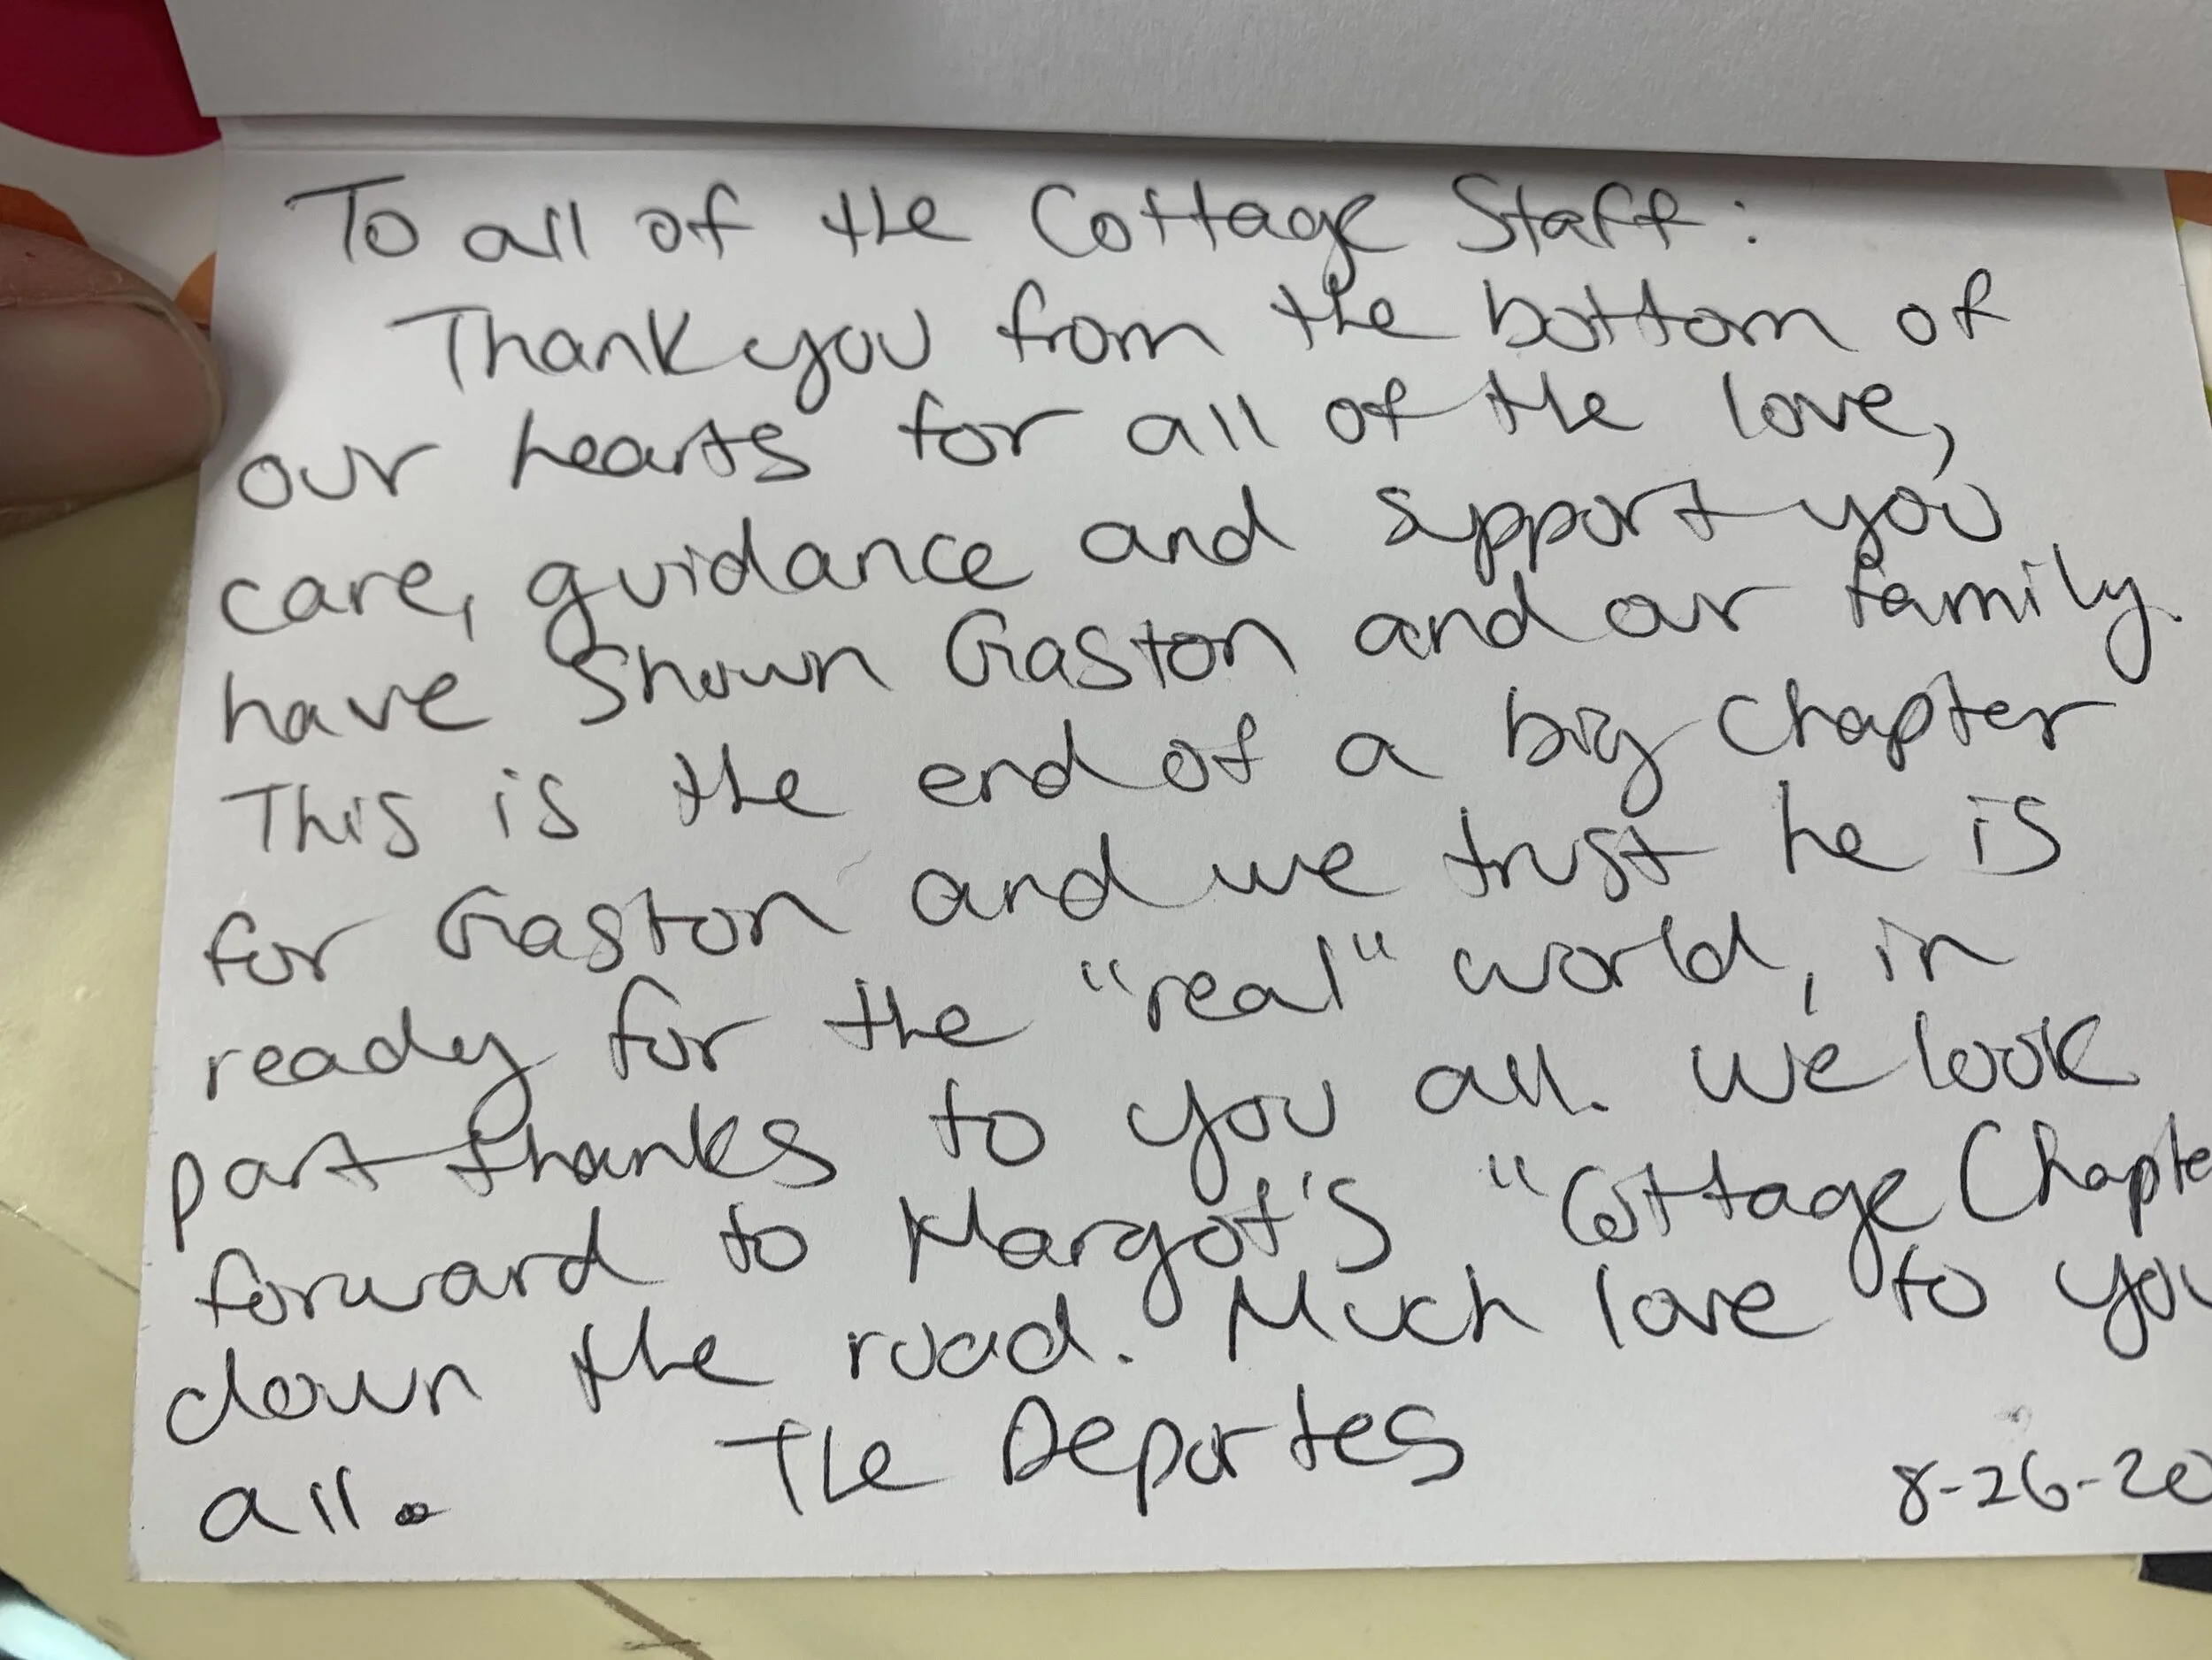 To all of the Cottage Staff:
Thank you from the bottom of
our hearts for all of the love,
care, guidance and support you
have Shown Gaston and our family.
This is the end of a big Chapter
for Gaston and we trust he is
ready for the "real" world, in
part thanks to you all. We look
forward to Margot's "Cottage Chapte
down the road. Much love to you
all. The Deportes
8-26-20